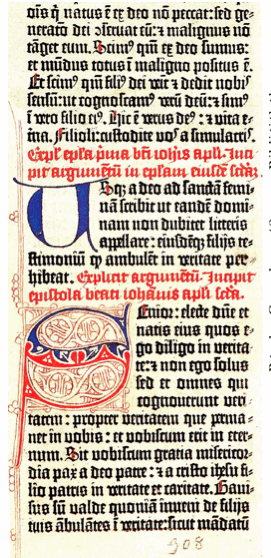 oīs q̇ natus ē ex deo nō peccat: sed ge-
neratō dei ↄseruat eū: ⁊ malignus nō
tāget eum. Scimꝰ qm̄ ex deo sumus:
et mūdus totus ī maligno positus ē.
Et scimꝰ qm̄ filiꝰ dei veīt ⁊ dedit nobis
sensū: ut cognoscamꝰ verū deū: ⁊ simꝰ
ī vero filio eiꝰ. Hic ē verus deꝰ: ⁊ vita e-
terna. Filioli: custodite vos a simulacris.
Expl̄ epl̄a prīma bt̄i ioh̄is apl̄i. Inci-
pit argumentū in epl̄am eiusdē secūda.
Usq; adeo ad sanctā femi-
nā scribit ut eandē domi-
nam non dubitet litteris
appellare: eiusdēq; filijs te-
stimoniū q̄ ambulēt in veritate per-
hibeat. Explicit argumentū. Incipit
epistola beati iohānis apl̄i secūda.
Senior: electe dn̄e et
natis eius quos e-
go diligo in verita-
te: ⁊ non ego solus
sed et omnes qui
cognouerunt veri-
tatem: propter veritatem que perma-
net in vobis: et vobiscum erit in eter-
num. Sit vobiscum gratia misericor-
dia pax a deo patre: ⁊ a cristo ihesu fi-
lio patris in veritate et caritate. Gaui-
sus sū valde quoniā inueni de filijs
tuis ābulātes ī veritate: sicut mādatū
308